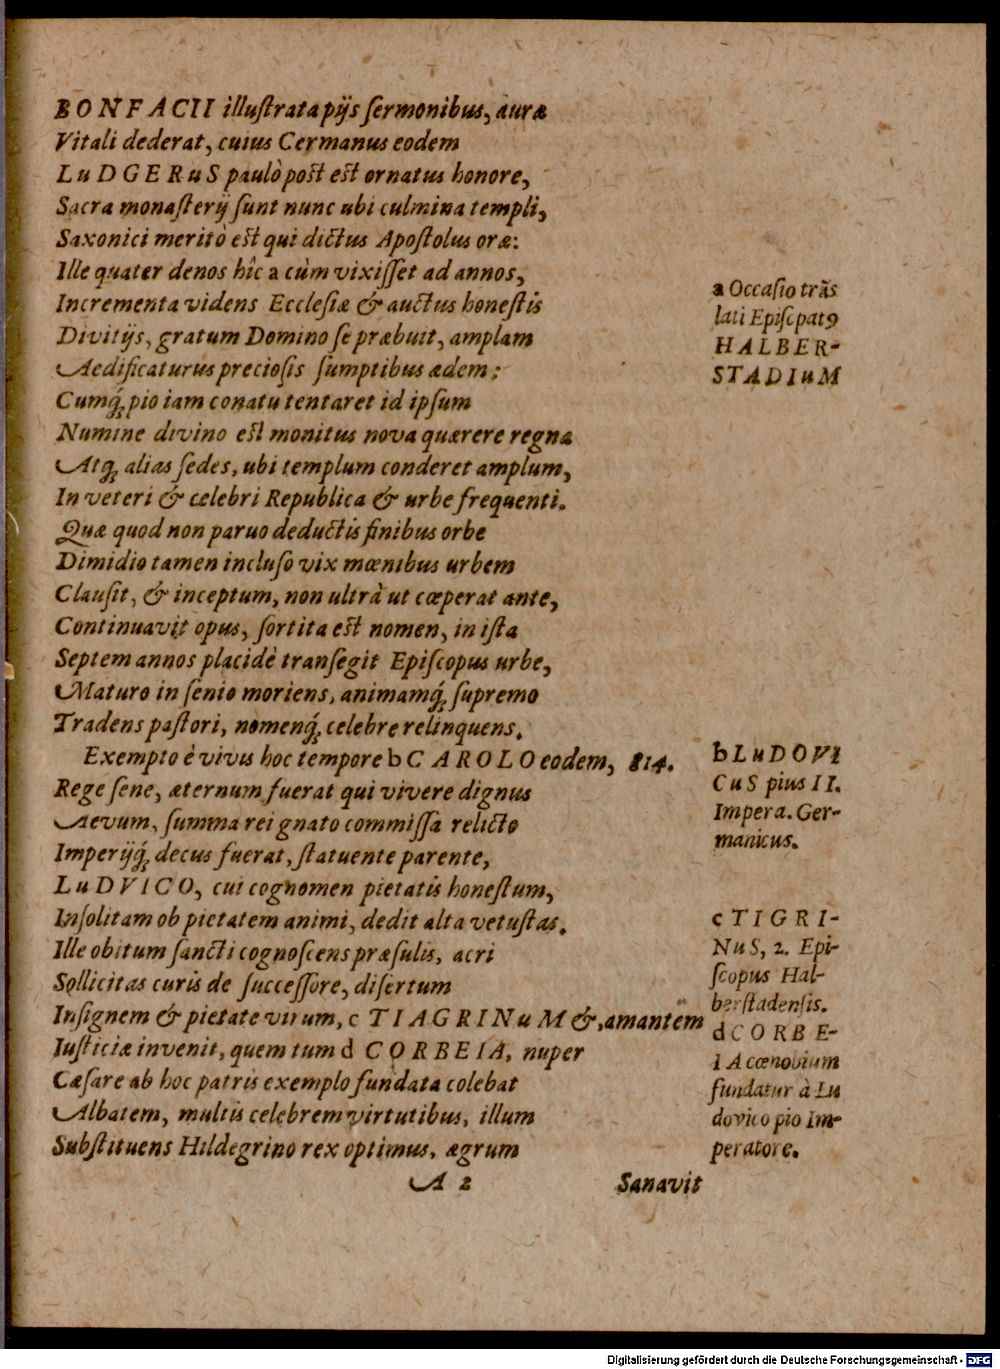 BONFACII illuſtrata pijs ſermonibus, auræ
Vitali dederat, cuius Cermanus eodem
LuDGERuS paulò pòst est ornatus honore,
Sacra monaſterij ſunt nunc ubi culmina templi,
Saxonici meritò est qui dictus Apoſtolus oræ:
Ille quater denos hîc a cùm vixiſſet ad annos,
Incrementa videns Eccleſiæ & auctus honeſtis
Divitijs, gratum Domino ſe præbuit, amplam
Aedificaturus precioſis ſumptibus ædem;
Cumq́; pio iam conatu tentaret id ipſum
Numine divino est monitus nova quærere regna
Atq; alias ſedes, ubi templum conderet amplum,
In veteri & celebri Republica & urbe frequenti.
Quæ quod non paruo deductis finibus orbe
Dimidio tamen incluſo vix mœnibus urbem
Clauſit, & inceptum, non ultrà ut cœperat ante,
Continuavit opus, ſortita est nomen, in iſta
Septem annos placidè tranſegit Epiſcopus urbe,
Maturo in ſenio moriens, animamq́; ſupremo
Tradens paſtori, nomenq́; celebre relinquens.
Exempto è vivis hoc tempore b CAROLO eodem, 814.
Rege ſene, æternum fuerat qui vivere dignus
Aevum, ſumma rei gnato commiſſa relicto
Imperijq́; decus fuerat, ſtatuente parente,
LuDVICO, cui cognomen pietatis honeſtum,
Inſolitam ob pietatem animi, dedit alta vetuſtas.
Ille obitum ſancti cognoſcens præſulis, acri
Sollicitas curis de ſucceſſore, diſertum
Inſignem & pietate virum, c TIAGRINuM &, amantem
Iuſticiæ invenit, quem tum d CORBEIA, nuper
Cæſare ab hoc patris exemplo fundata colebat
Albatem, multis celebrem virtutibus, illum
Subſtituens Hildegrino rex optimus, ægrum
A 2 Sanavit
a Occaſio trãs
lati Epiſcpatꝰ
HALBER-
STADIuM
b LuDOVI
CuS pius II.
Impera. Ger-
manicus.
c TIGRI-
NuS, 2. Epi-
ſcopus Hal-
berſtadenſis.
d CORBE-
IA cœnobium
fundatur à Lu
dovico pio Im-
peratore.
Digitalisierung gefördert durch die Deutsche Forschungsgemeinschaft - DFG